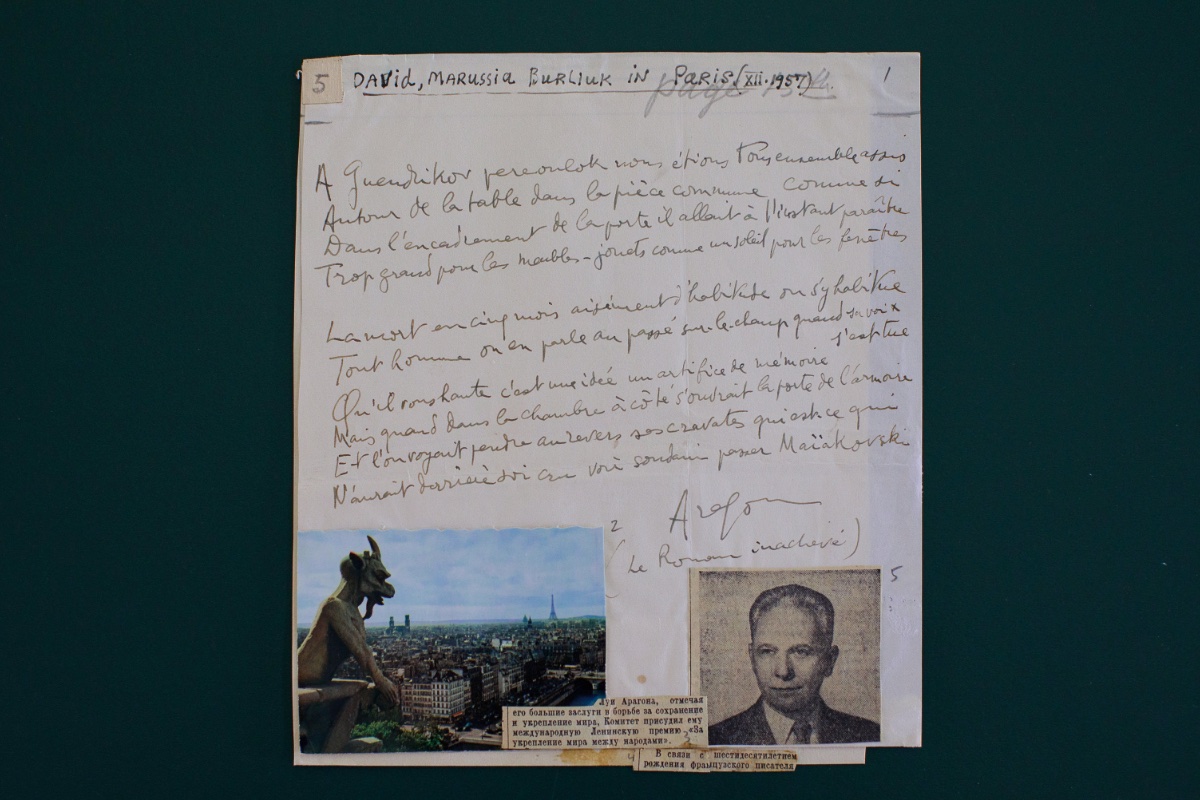 5
DAVID, MARUSSIA BURLIUK IN PARIS. (XII. 1957).
page 15th
1
A Guendrikov pereoulok nous étions tous ensemble assis
Autour de la table dans la pièce commune comme si
Dans l'encadrement de la porte il allait à l'instant paraître
Trop grand pour les meubles-jouets comme un soleil pour les fenêtres
La mort en cinq mois aisément d'habitude on s'y habitue
Tout homme on en parle au passé sur-le-champ quand sa voix
s'est tue
Qu'il vous hante c'est une idée un artifice de mémoire
Mais quand dans la chambre à côté s'ouvrait la porte de l'armoire
Et l'on voyait pendre au revers ses cravates qui est-ce qui
N'aurait derrière soi cru voir soudain passer Maïakovski
Aragon
(Le Roman inachevé)
2
5
Луи Арагона, отмечая
его большие заслуги в борьбе за сохранение
и укрепление мира, Комитет присудил ему
международную Ленинскую премию «За
укрепление мира между народами».
3
4
В связи с шестидесятилетием
рождения французского писателя